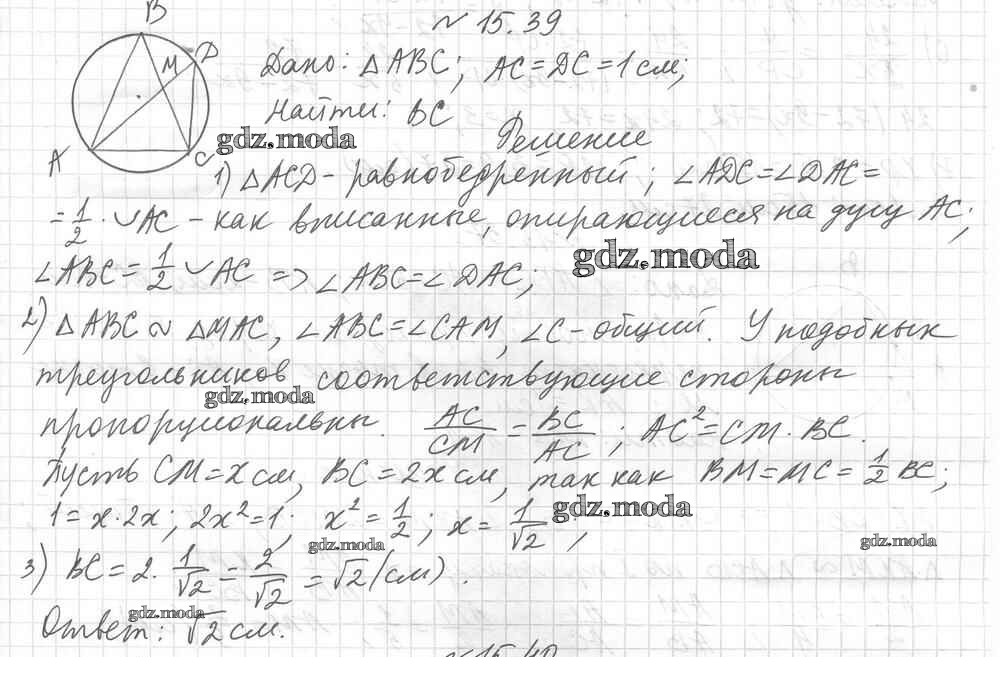 № 15.39
B
D
M
A
C
Дано: △ABC; AC=DC=1 см;
Найти: BC
Решение
gdz.moda
1) △ACD - равнобедренный; ∠ADC=∠DAC=
= 1/2 · ◡AC - как вписанные, опирающиеся на дугу AC;
gdz.moda
∠ABC = 1/2 ◡AC => ∠ABC=∠DAC;
2) △ABC ~ △MAC, ∠ABC=∠CAM, ∠C - общий. У подобных
треугольников соответствующие стороны
gdz.moda
пропорциональны. AC/CM = BC/AC; AC²=CM·BC.
Пусть CM=x см, BC=2x см, так как BM=MC=1/2 BC;
gdz.moda
1=x·2x; 2x²=1; x²=1/2; x=1/√2;
gdz.moda
gdz.moda
3) BC=2·1/√2=2/√2=√2(см).
gdz.moda
Ответ: √2 см.
№15.40